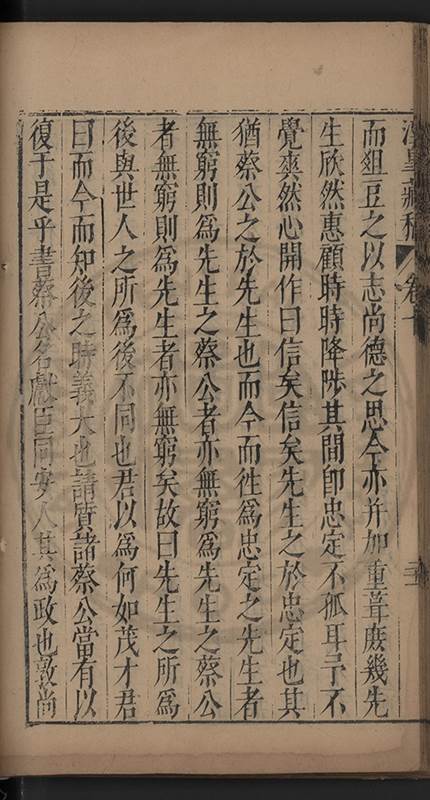 卷十
而俎豆之以志尚德之思今亦并加重葺庶幾先
生欣然惠顧時時降陟其間卽忠定不孤耳予不
覺爽然心開作曰信矣信矣先生之於忠定也其
猶蔡公之於先生也而今而徃爲忠定之先生者
無窮則爲先生之蔡公者亦無窮爲先生之蔡公
者無窮則爲先生者亦無窮矣故曰先生之所爲
後與世人之所爲後不同也君以爲何如茂才君
曰而今而知後之時義大也請質諸蔡公當有以
復于是乎書蔡公名獻臣同安人其爲政也敦尚